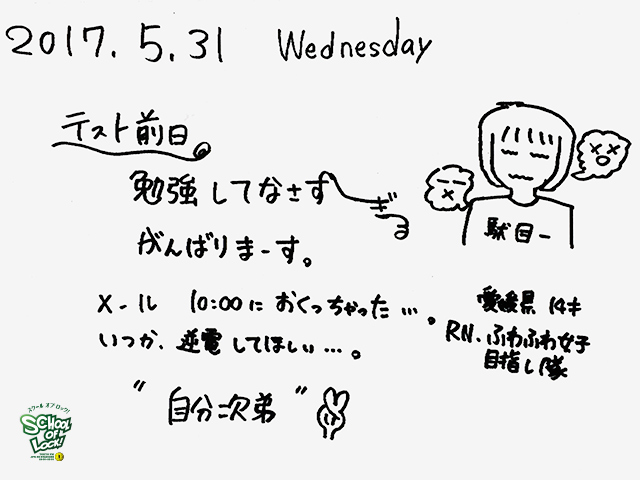 2017.5.31 Wednesday
テスト前日
勉強してなさすぎる
がんばりまーす。
メール 10:00に おくっちゃった…。
いつか、逆電してほしい…。
"自分次弟"
駄目ー
愛媛県 14才
RN.ふわふわ女子
目指し隊
スクール オブ ロック!
SCHOOL
OF
LOCK!